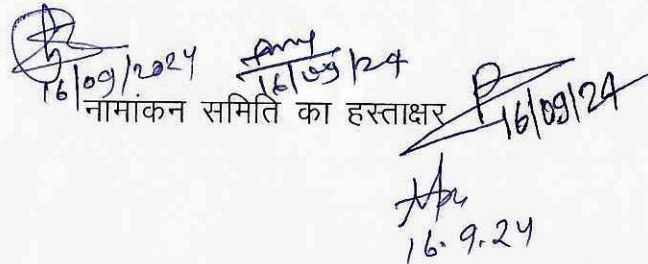 16/09/2024 16/09/24
नामांकन समिति का हस्ताक्षर 16/09/24
16.9.24